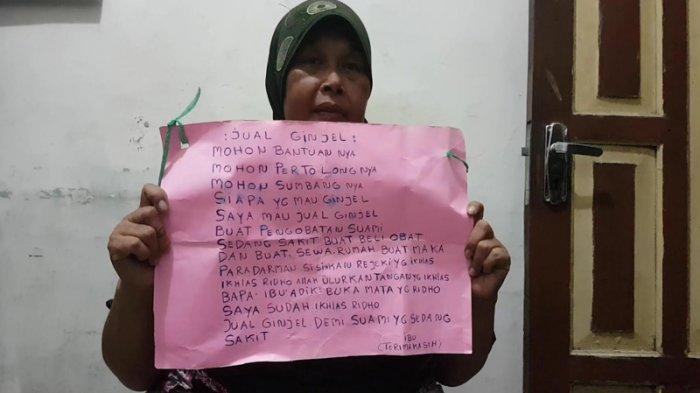 :JUAL GINJEL:
MOHON BANTUAN NYA
MOHON PERTOLONG NYA
MOHON SUMBANG NYA
SIAPA YG MAU GINJEL
SAYA MAU JUAL GINJEL
BUAT PENGOBATAN SUAMI
SEDANG SAKIT BUAT BELI OBAT
DAN BUAT. SEWA. RUMAH BUAT MAKA
PARA DARMAN SISIHKAN REJEKI YG IKHLAS
IKHLAS RIDHO ALLAH ULURKAN TANGAN YG IKHLAS
BAPA. IBU ADIK. BUKA MATA YG RIDHO
SAYA SUDAH IKHLAS RIDHO
JUAL GINJEL. DEMI SUAMI YG SEDANG
SAKIT
IBU
(TERIMAKASIH)